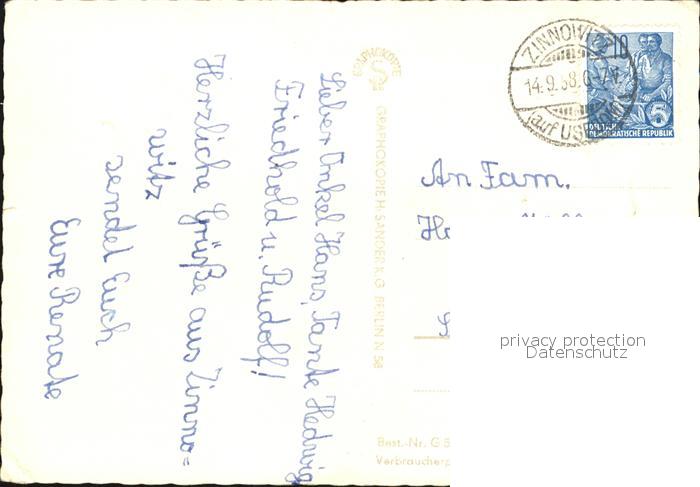 Lieber Onkel Hans, Tante Hedwig
Friedhold u. Rudolf!
Herzliche Grüße aus Zinno=
witz
sendet Euch
Eure Renate
GRAPHOKOPIE
GRAPHOKOPIE H. SANDER K.G. BERLIN N 58
ZINNOWITZ
14.9.58
(auf USEDOM)
10
5
DEUTSCHE
DEMOKRATISCHE REPUBLIK
An Fam.
privacy protection
Datenschutz
Best.-Nr. G 5
Verbraucherp